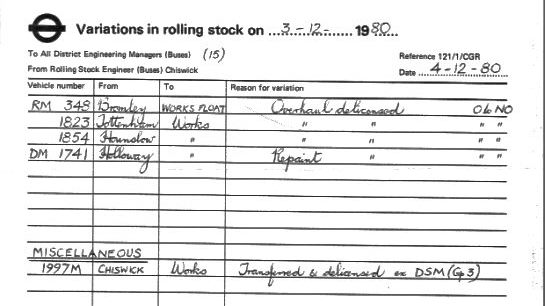 Variations in rolling stock on 3-12- 1980
To All District Engineering Managers (Buses) (15)
Reference 121/1/CGR
From Rolling Stock Engineer (Buses) Chiswick
Date 4-12-80
Vehicle number From To Reason for variation
RM 348 Bromley WORKS FLOAT Overhaul delicensed Ob NO
1823 Tottenham Works " " " "
1854 Hounslow " " " " "
DM 1741 Holloway " Repaint " " "
MISCELLANEOUS
1997M CHISWICK Works Transferred & delicensed ex DSM (Gp 3)